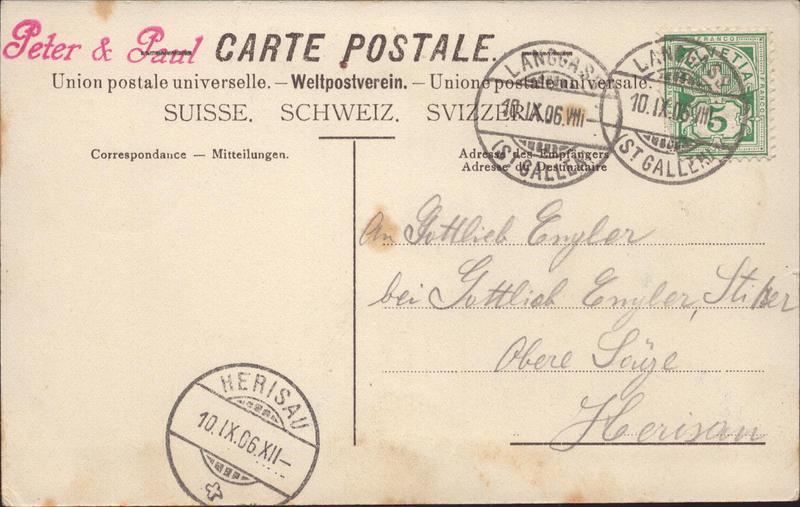 Peter & Paul
CARTE POSTALE.
Union postale universelle. — Weltpostverein. — Unione postale universale.
SUISSE. SCHWEIZ. SVIZZERA.
Correspondance — Mitteilungen.
Adresse des Empfängers
Adresse du Destinataire
LANGGASS
10.IX.06.VIII—
(ST GALLEN)
LANGGASS
10.IX.06.VIII
(ST GALLEN)
FRANCO
HELVETIA
5
An Gottlieb Engler
bei Gottlieb Engler, Sticker
Obere Säge
Herisau
HERISAU
10.IX.06.XII—